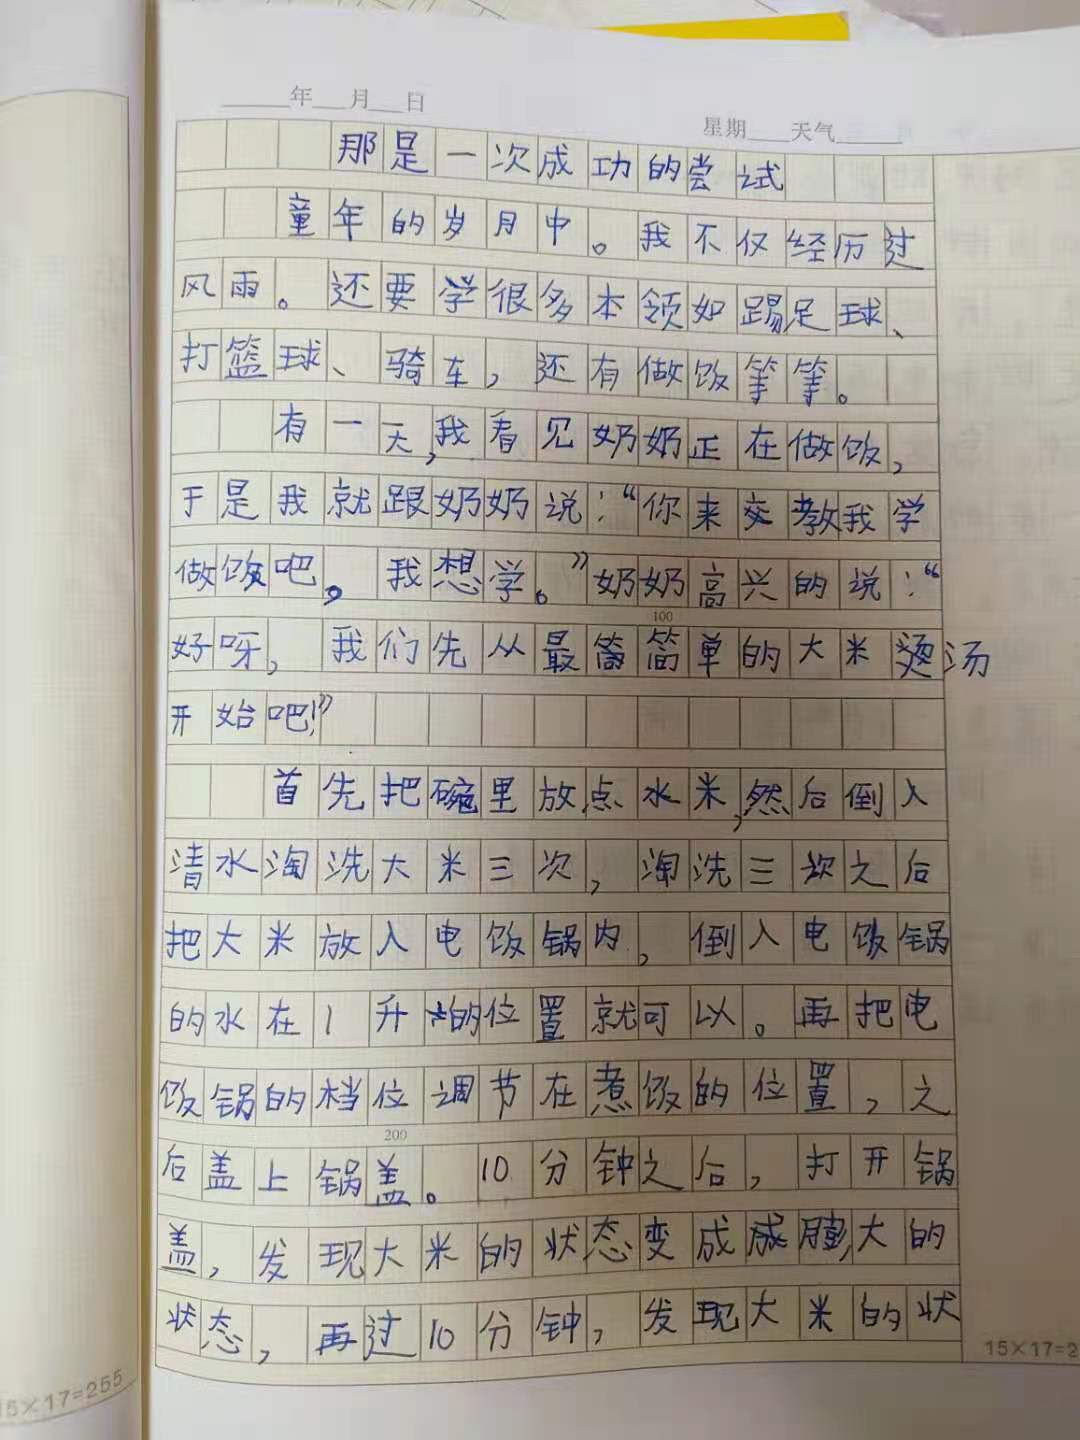 年 月 日
星期 天气
那是一次成功的尝试
童年的岁月中。我不仅经历过
风雨。还要学很多本领如踢足球、
打篮球、骑车,还有做饭等等。
有一天,我看见奶奶正在做饭,
于是我就跟奶奶说:“你来教我学
做饭吧,我想学。”奶奶高兴的说:“
100
好呀,我们先从最简单的大米汤
开始吧!”
首先把碗里放点水米,然后倒入
清水淘洗大米三次,淘洗三次之后
把大米放入电饭锅内,倒入电饭锅
的水在1升的位置就可以。再把电
饭锅的档位调节在煮饭的位置,之
200
后盖上锅盖。10分钟之后,打开锅
盖,发现大米的状态变成膨大的
状态,再过10分钟,发现大米的状
15×17=255
15×17=2